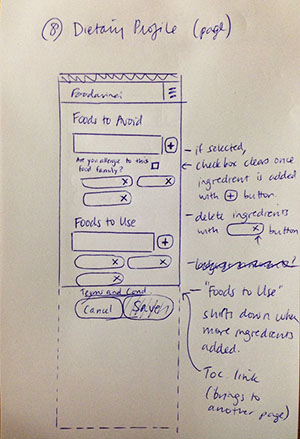 (8) Dietary Profile (page)
Foodarinni
Foods to Avoid
+
Are you allergic to this
food family?
x
x
x
Foods to Use
+
x
x
x
Terms and Cond.
Cancel
Save
- if selected,
checkbox clears once
ingredient is added
with + button.
- delete ingredients
with x button
- "Foods to Use"
shifts down when
more ingredients
added.
ToC link
(brings to
another page)